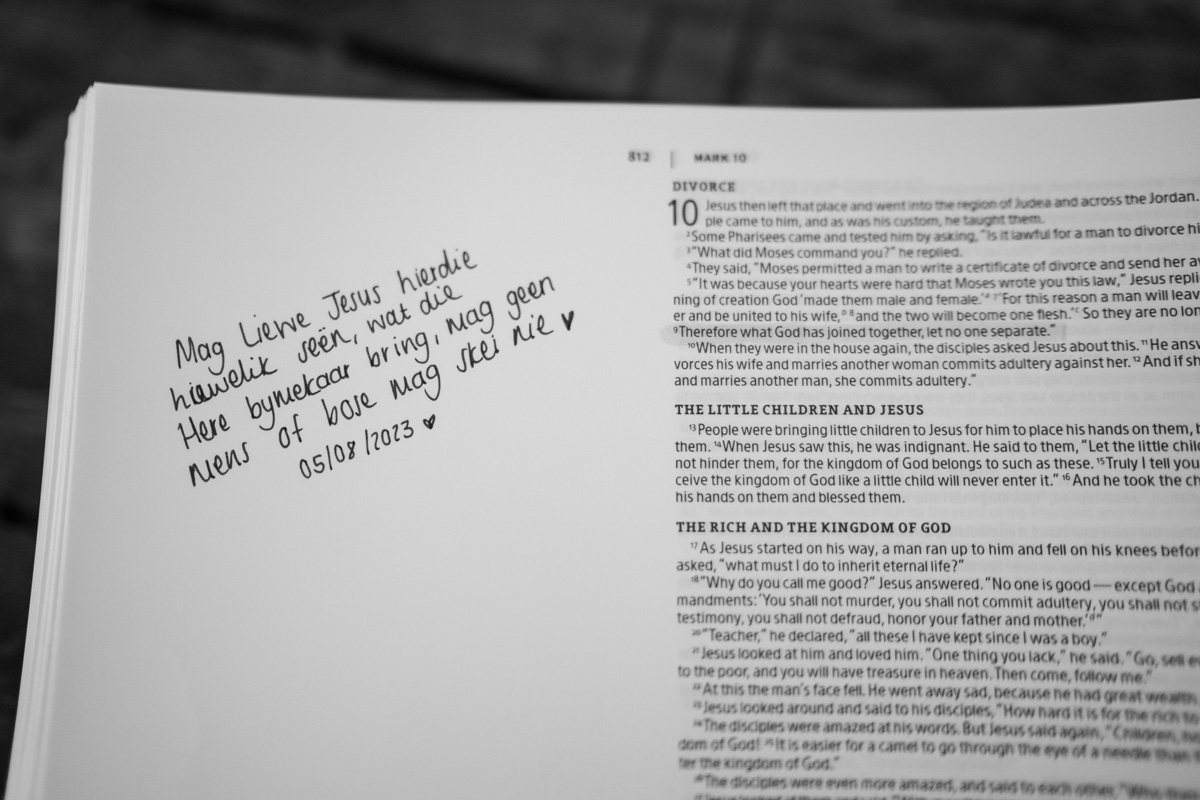 Mag Liewe Jesus hierdie
hiuwelik seën, wat die
Here bymekaar bring, mag geen
mens of bose mag skei nie ♥
05/08/2023 ♥
812 | MARK 10
DIVORCE
10 Jesus then left that place and went into the region of Judea and across the Jordan.
ple came to him, and as was his custom, he taught them.
2Some Pharisees came and tested him by asking, "Is it lawful for a man to divorce hi
3"What did Moses command you?" he replied.
4They said, "Moses permitted a man to write a certificate of divorce and send her aw
5"It was because your hearts were hard that Moses wrote you this law," Jesus repli
ning of creation God 'made them male and female.'a 7'For this reason a man will leav
er and be united to his wife,b 8and the two will become one flesh.'c So they are no lon
9Therefore what God has joined together, let no one separate."
10When they were in the house again, the disciples asked Jesus about this. 11He answ
vorces his wife and marries another woman commits adultery against her. 12And if sh
and marries another man, she commits adultery."
THE LITTLE CHILDREN AND JESUS
13People were bringing little children to Jesus for him to place his hands on them, b
them. 14When Jesus saw this, he was indignant. He said to them, "Let the little chil
not hinder them, for the kingdom of God belongs to such as these. 15Truly I tell you
ceive the kingdom of God like a little child will never enter it." 16And he took the ch
his hands on them and blessed them.
THE RICH AND THE KINGDOM OF GOD
17As Jesus started on his way, a man ran up to him and fell on his knees befor
asked, "what must I do to inherit eternal life?"
18"Why do you call me good?" Jesus answered. "No one is good — except God
mandments: 'You shall not murder, you shall not commit adultery, you shall not s
testimony, you shall not defraud, honor your father and mother.'d"
20"Teacher," he declared, "all these I have kept since I was a boy."
21Jesus looked at him and loved him. "One thing you lack," he said. "Go, sell e
to the poor, and you will have treasure in heaven. Then come, follow me."
22At this the man's face fell. He went away sad, because he had great wealth
23Jesus looked around and said to his disciples, "How hard it is for the rich to
24The disciples were amazed at his words. But Jesus said again, "Children,
dom of God! 25It is easier for a camel to go through the eye of a needle than
ter the kingdom of God."
26The disciples were even more amazed, and said to each other, "Who